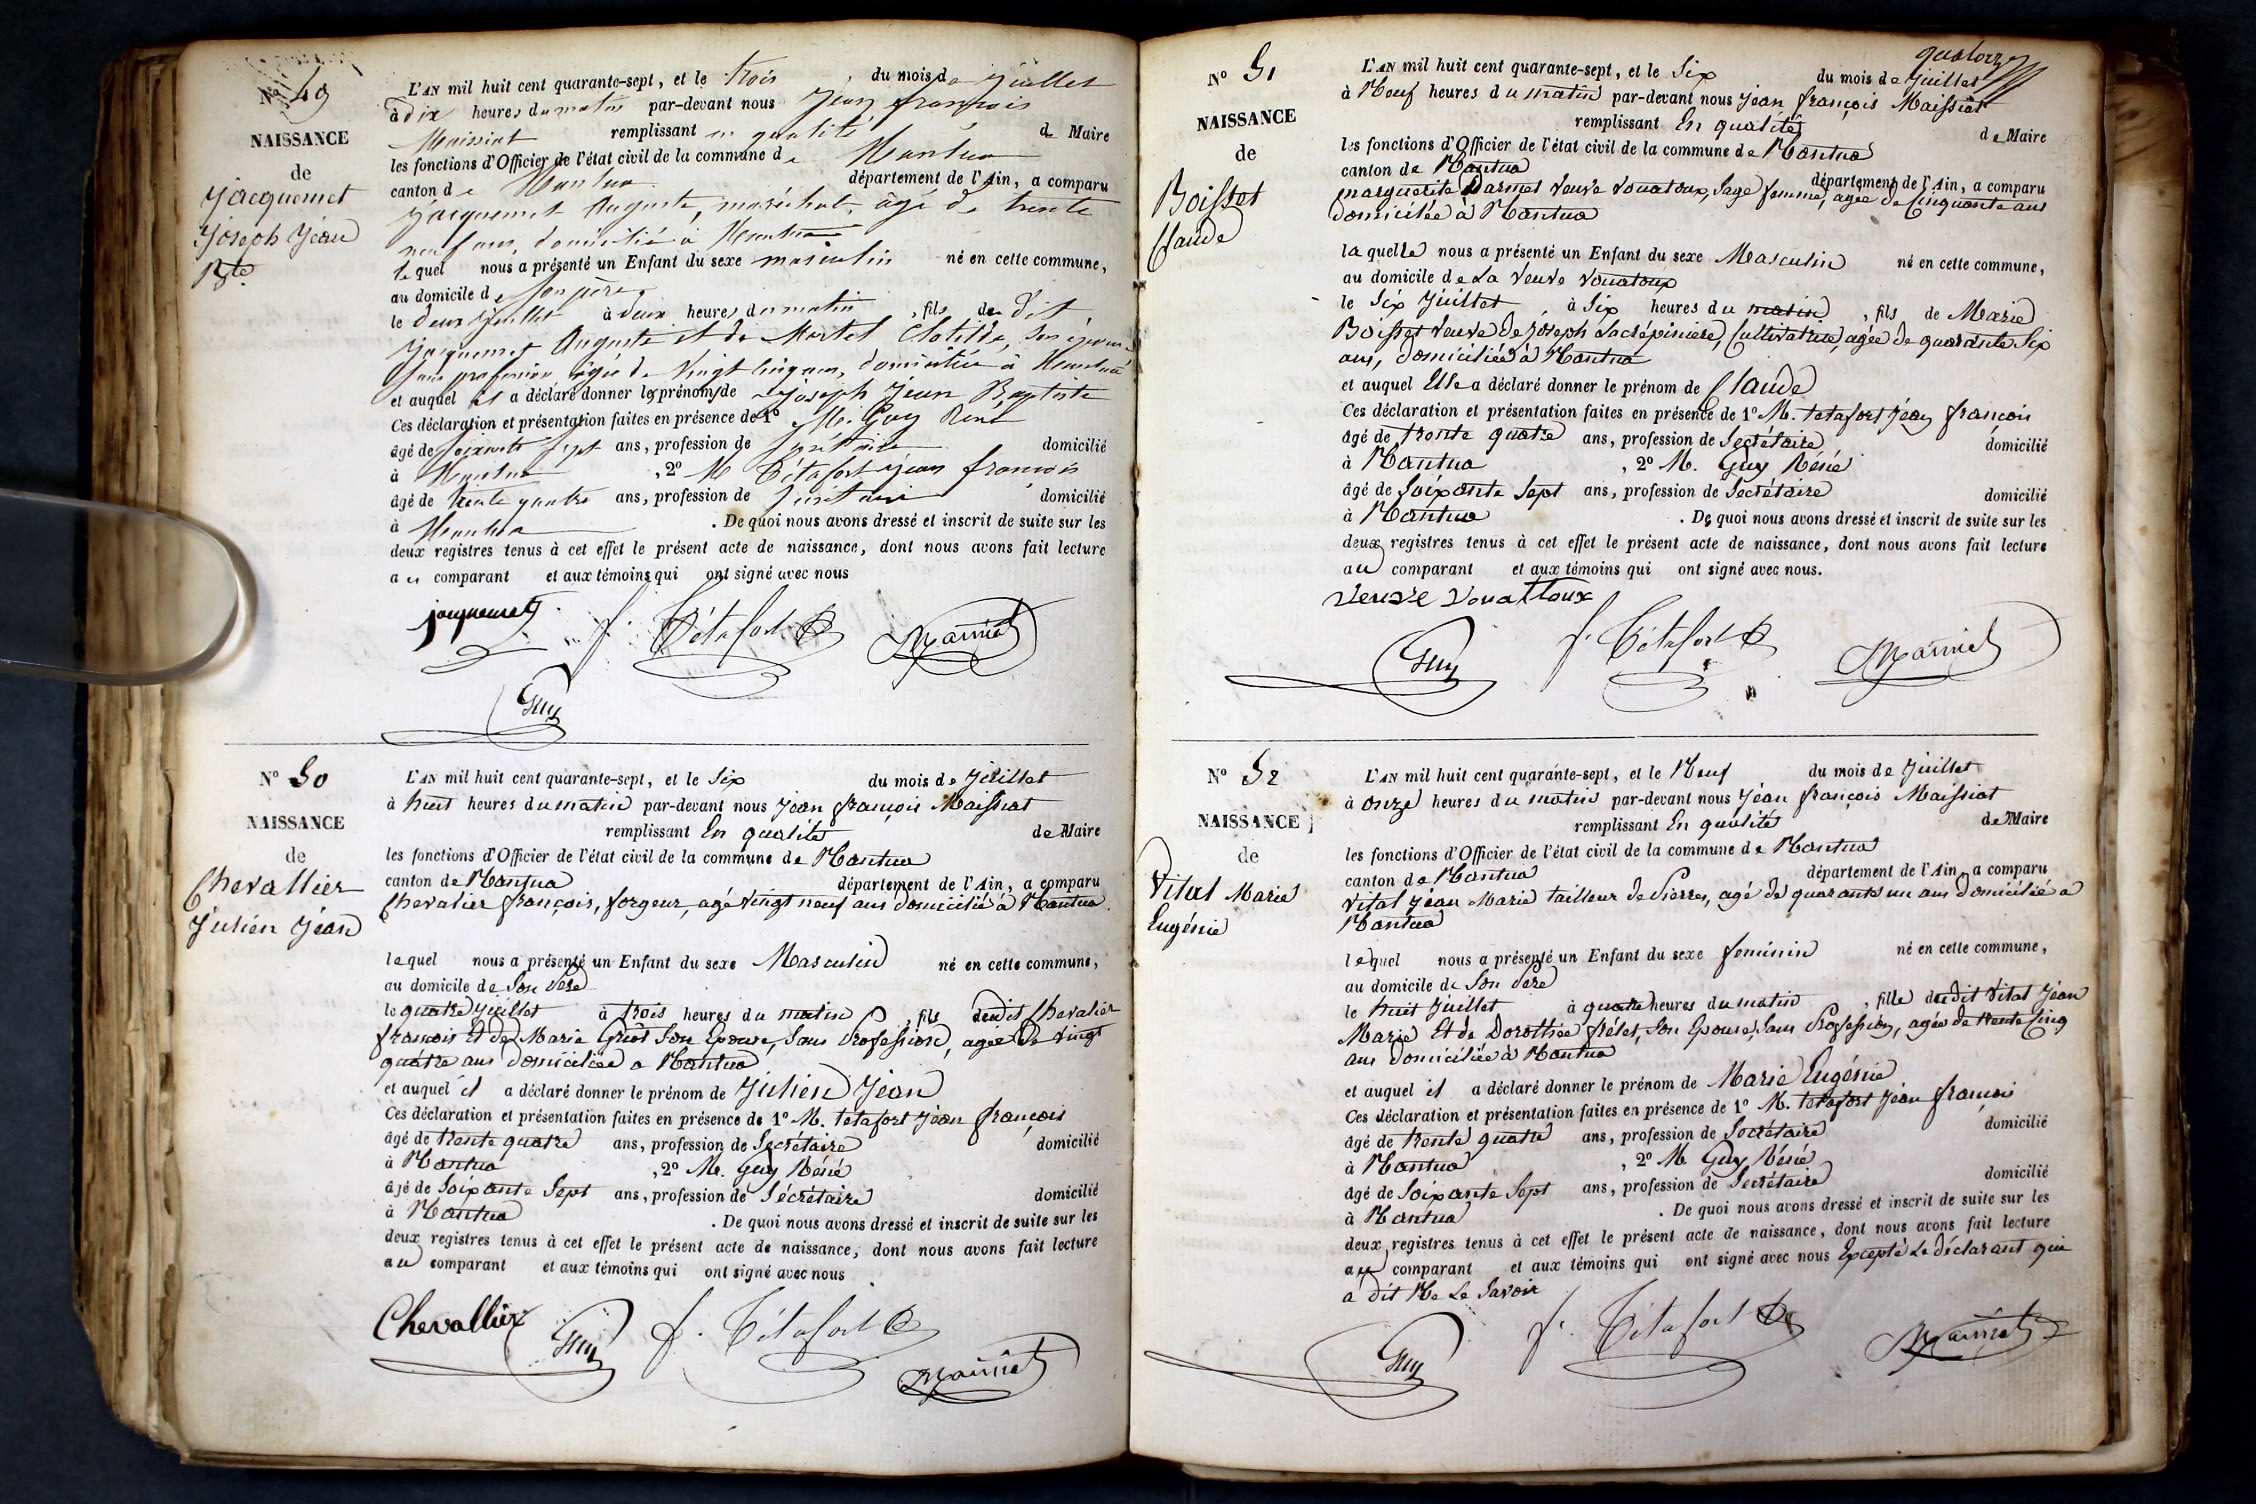 N° 49
NAISSANCE
de
Jacquemet
Joseph Jean
Bte
L'AN mil huit cent quarante-sept, et le trois du mois de Juillet
à dix heures du matin par-devant nous Jean françois
Maissiat remplissant en qualité de Maire
les fonctions d'Officier de l'état civil de la commune de Mantua
canton de Mantua département de l'Ain, a comparu
Jacquemet Auguste, maréchal, âgé de trente
neuf ans, domicilié à Mantua
lequel nous a présenté un Enfant du sexe masculin né en cette commune,
au domicile de son père
le deux Juillet à deux heures du matin, fils du dit
Jacquemet Auguste et de Martel Clotilde, son épouse
sans profession âgée de Vingt cinq ans, domiciliée à Mantua
et auquel il a déclaré donner les prénoms de Joseph Jean Baptiste
Ces déclaration et présentation faites en présence de 1° M. Guy René
âgé de soixante sept ans, profession de secrétaire domicilié
à Mantua, 2° M Tétafort Jean françois
âgé de trente quatre ans, profession de secrétaire domicilié
à Mantua. De quoi nous avons dressé et inscrit de suite sur les
deux registres tenus à cet effet le présent acte de naissance, dont nous avons fait lecture
au comparant et aux témoins qui ont signé avec nous
jacquemet f. Tétafort Maissiat
Guy
N° 50
NAISSANCE
de
Chevallier
Julien Jean
L'AN mil huit cent quarante-sept, et le Six du mois de Juillet
à huit heures du matin par-devant nous Jean françois Maissiat
remplissant En qualité de Maire
les fonctions d'Officier de l'état civil de la commune de Mantua
canton de Mantua département de l'Ain, a comparu
Chevalier françois, forgeur, agé Vingt neuf ans domicilié à Mantua.
lequel nous a présenté un Enfant du sexe Masculin né en cette commune,
au domicile de Son Père
le quatre Juillet à trois heures du matin, fils dudit Chevalier
françois Et de Marie Griot Son Epouse, Sans Profession, agée De vingt
quatre ans domiciliée a Mantua
et auquel il a déclaré donner le prénom de Julien Jean
Ces déclaration et présentation faites en présence de 1° M. tetafort Jean françois
âgé de trente quatre ans, profession de Secrétaire domicilié
à Mantua, 2° M. Guy Réné
âgé de Soixante Sept ans, profession de Sécrétaire domicilié
à Mantua. De quoi nous avons dressé et inscrit de suite sur les
deux registres tenus à cet effet le présent acte de naissance, dont nous avons fait lecture
au comparant et aux témoins qui ont signé avec nous
Chevallier Guy f. Tétafort Maissiat
quatorze
N° 51
NAISSANCE
de
Boisset
Claude
L'AN mil huit cent quarante-sept, et le Six du mois de Juillet
à Neuf heures du matin par-devant nous Jean françois Maissiat
remplissant En qualité de Maire
les fonctions d'Officier de l'état civil de la commune de Mantua
canton de Mantua département de l'Ain, a comparu
marguerite Darmet veuve vouatoux, Sage femme, agée de Cinquante ans
domiciliée à Mantua
laquelle nous a présenté un Enfant du sexe Masculin né en cette commune,
au domicile de La Veuve Vouatoux
le Six Juillet à Six heures du matin, fils de Marie
Boisset veuve de Joseph Lacrépiniere, Cultivatrice, agée de quarante Six
ans, domiciliée à Mantua
et auquel Elle a déclaré donner le prénom de Claude
Ces déclaration et présentation faites en présence de 1° M. tetafort Jean françois
âgé de trente quatre ans, profession de Secrétaire domicilié
à Mantua, 2° M. Guy Réné
âgé de Soixante Sept ans, profession de Secrétaire domicilié
à Mantua. De quoi nous avons dressé et inscrit de suite sur les
deux registres tenus à cet effet le présent acte de naissance, dont nous avons fait lecture
au comparant et aux témoins qui ont signé avec nous.
veuve vouattoux
Guy f. Tétafort Maissiat
N° 52
NAISSANCE
de
Vital Marie
Eugénie
L'AN mil huit cent quarante-sept, et le Neuf du mois de Juillet
à onze heures du matin par-devant nous Jean françois Maissiat
remplissant En qualité de Maire
les fonctions d'Officier de l'état civil de la commune de Mantua
canton de Mantua département de l'Ain, a comparu
Vital Jean Marie tailleur de Pierres, agé de quarante un ans domicilié a
Mantua
lequel nous a présenté un Enfant du sexe feminin né en cette commune,
au domicile de Son Père
le huit Juillet à quatre heures du matin, fille dudit Vital Jean
Marie Et de Dorothée frélet, Son Epouse, Sans Profession, agée de trente Cinq
ans domiciliée à Mantua
et auquel il a déclaré donner le prénom de Marie Eugénie
Ces déclaration et présentation faites en présence de 1° M. tetafort Jean françois
âgé de trente quatre ans, profession de Secrétaire domicilié
à Mantua, 2° M Guy Réné
âgé de Soixante Sept ans, profession de Secrétaire domicilié
à Mantua. De quoi nous avons dressé et inscrit de suite sur les
deux registres tenus à cet effet le présent acte de naissance, dont nous avons fait lecture
au comparant et aux témoins qui ont signé avec nous Excepté Le déclarant qui
a dit Ne Le Savoir
Guy f. Tétafort Maissiat